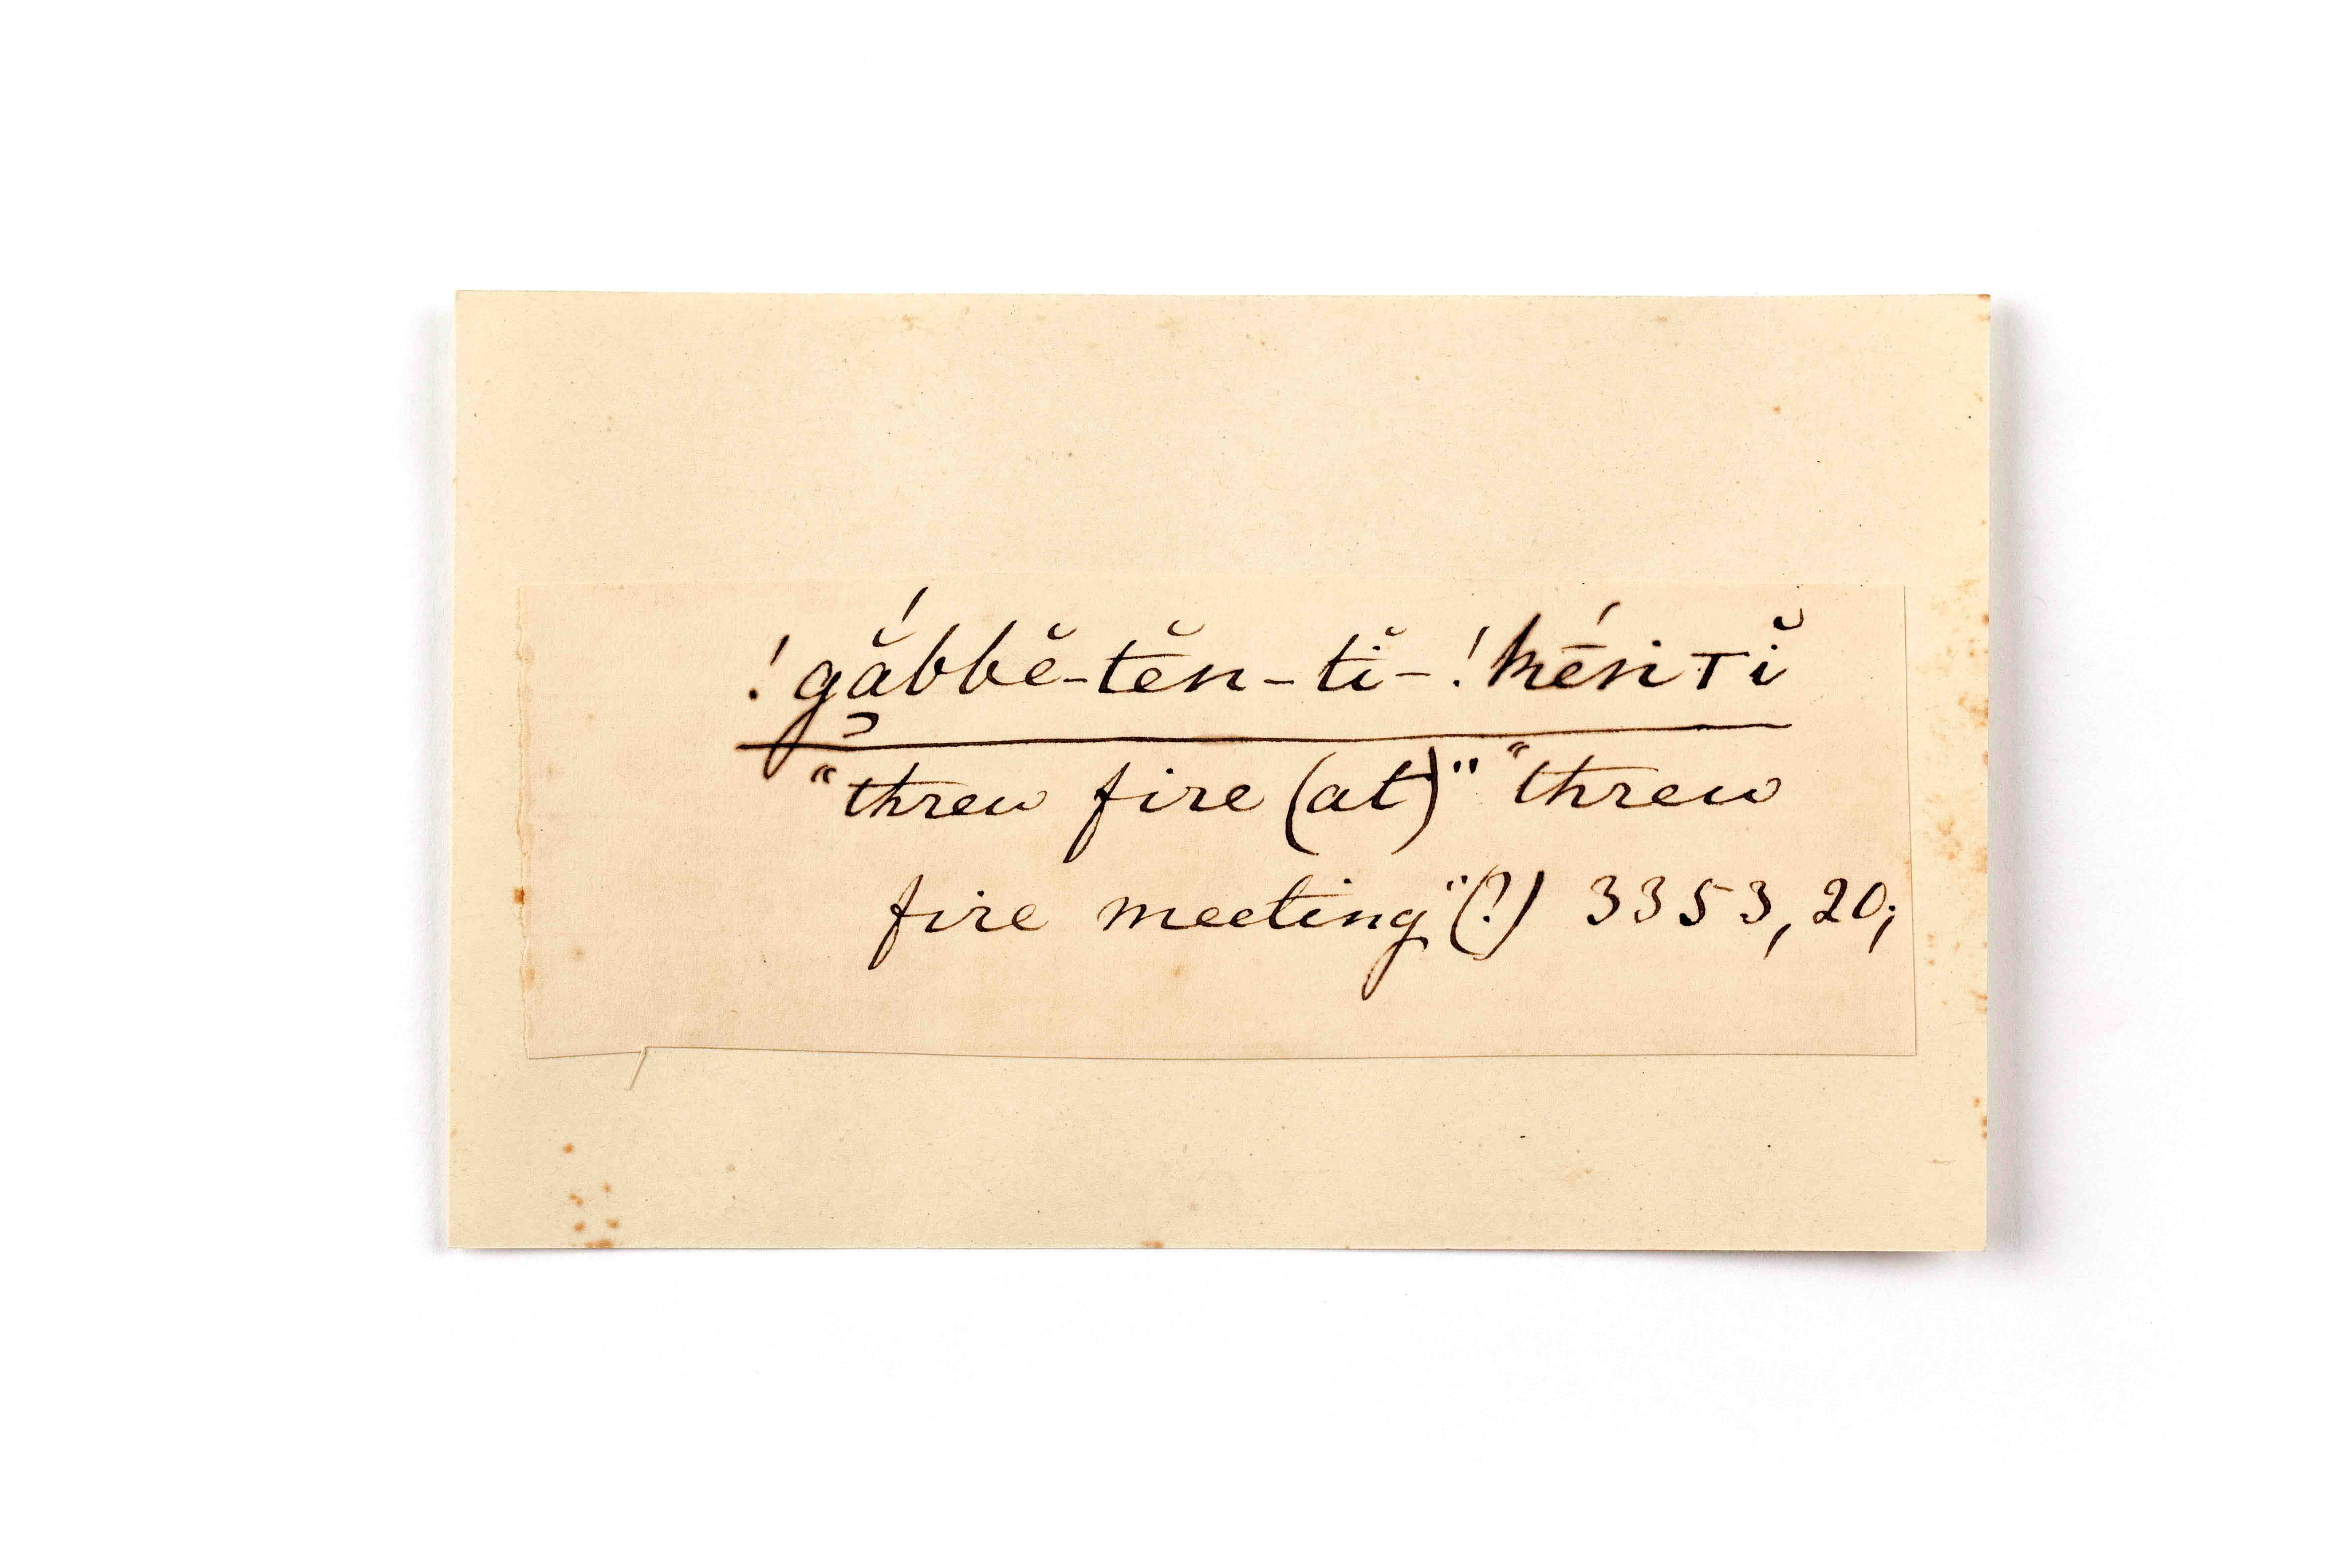 !gắ̯bbĕ-tĕn-tĭ-!kḗnTĭ
"threw fire (at)" "threw
fire meeting"(?) 3353, 20;